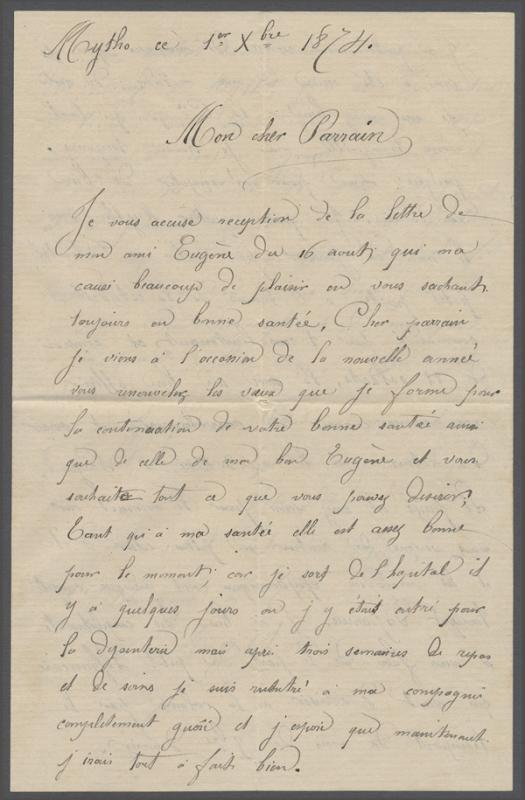 Mytho ce 1er Xbre 1874.
Mon cher Parrain
Je vous accuse reception de la lettre de
mon ami Eugène du 16 aout, qui ma
causé beaucoup de plaisir en vous sachant
toujours en bonne santée, Cher parrain
Je viens à l'occasion de la nouvelle année
vous renouvelez les vœux que je forme pour
la continuation de votre bonne santée ainsi
que de celle de mon bon Eugène et vous
souhaite tout ce que vous pouvez désirer;
Tant qu'à ma santée elle est assez bonne
pour le moment; car je sort de l'hopital il
y à quelques jours ou j y était entré pour
la dysenterie mais apres trois semaines de repos
et de soins je suis rentré à ma compagnie
completement guérie et j espère que maintenant
j irais tout à fait bien.